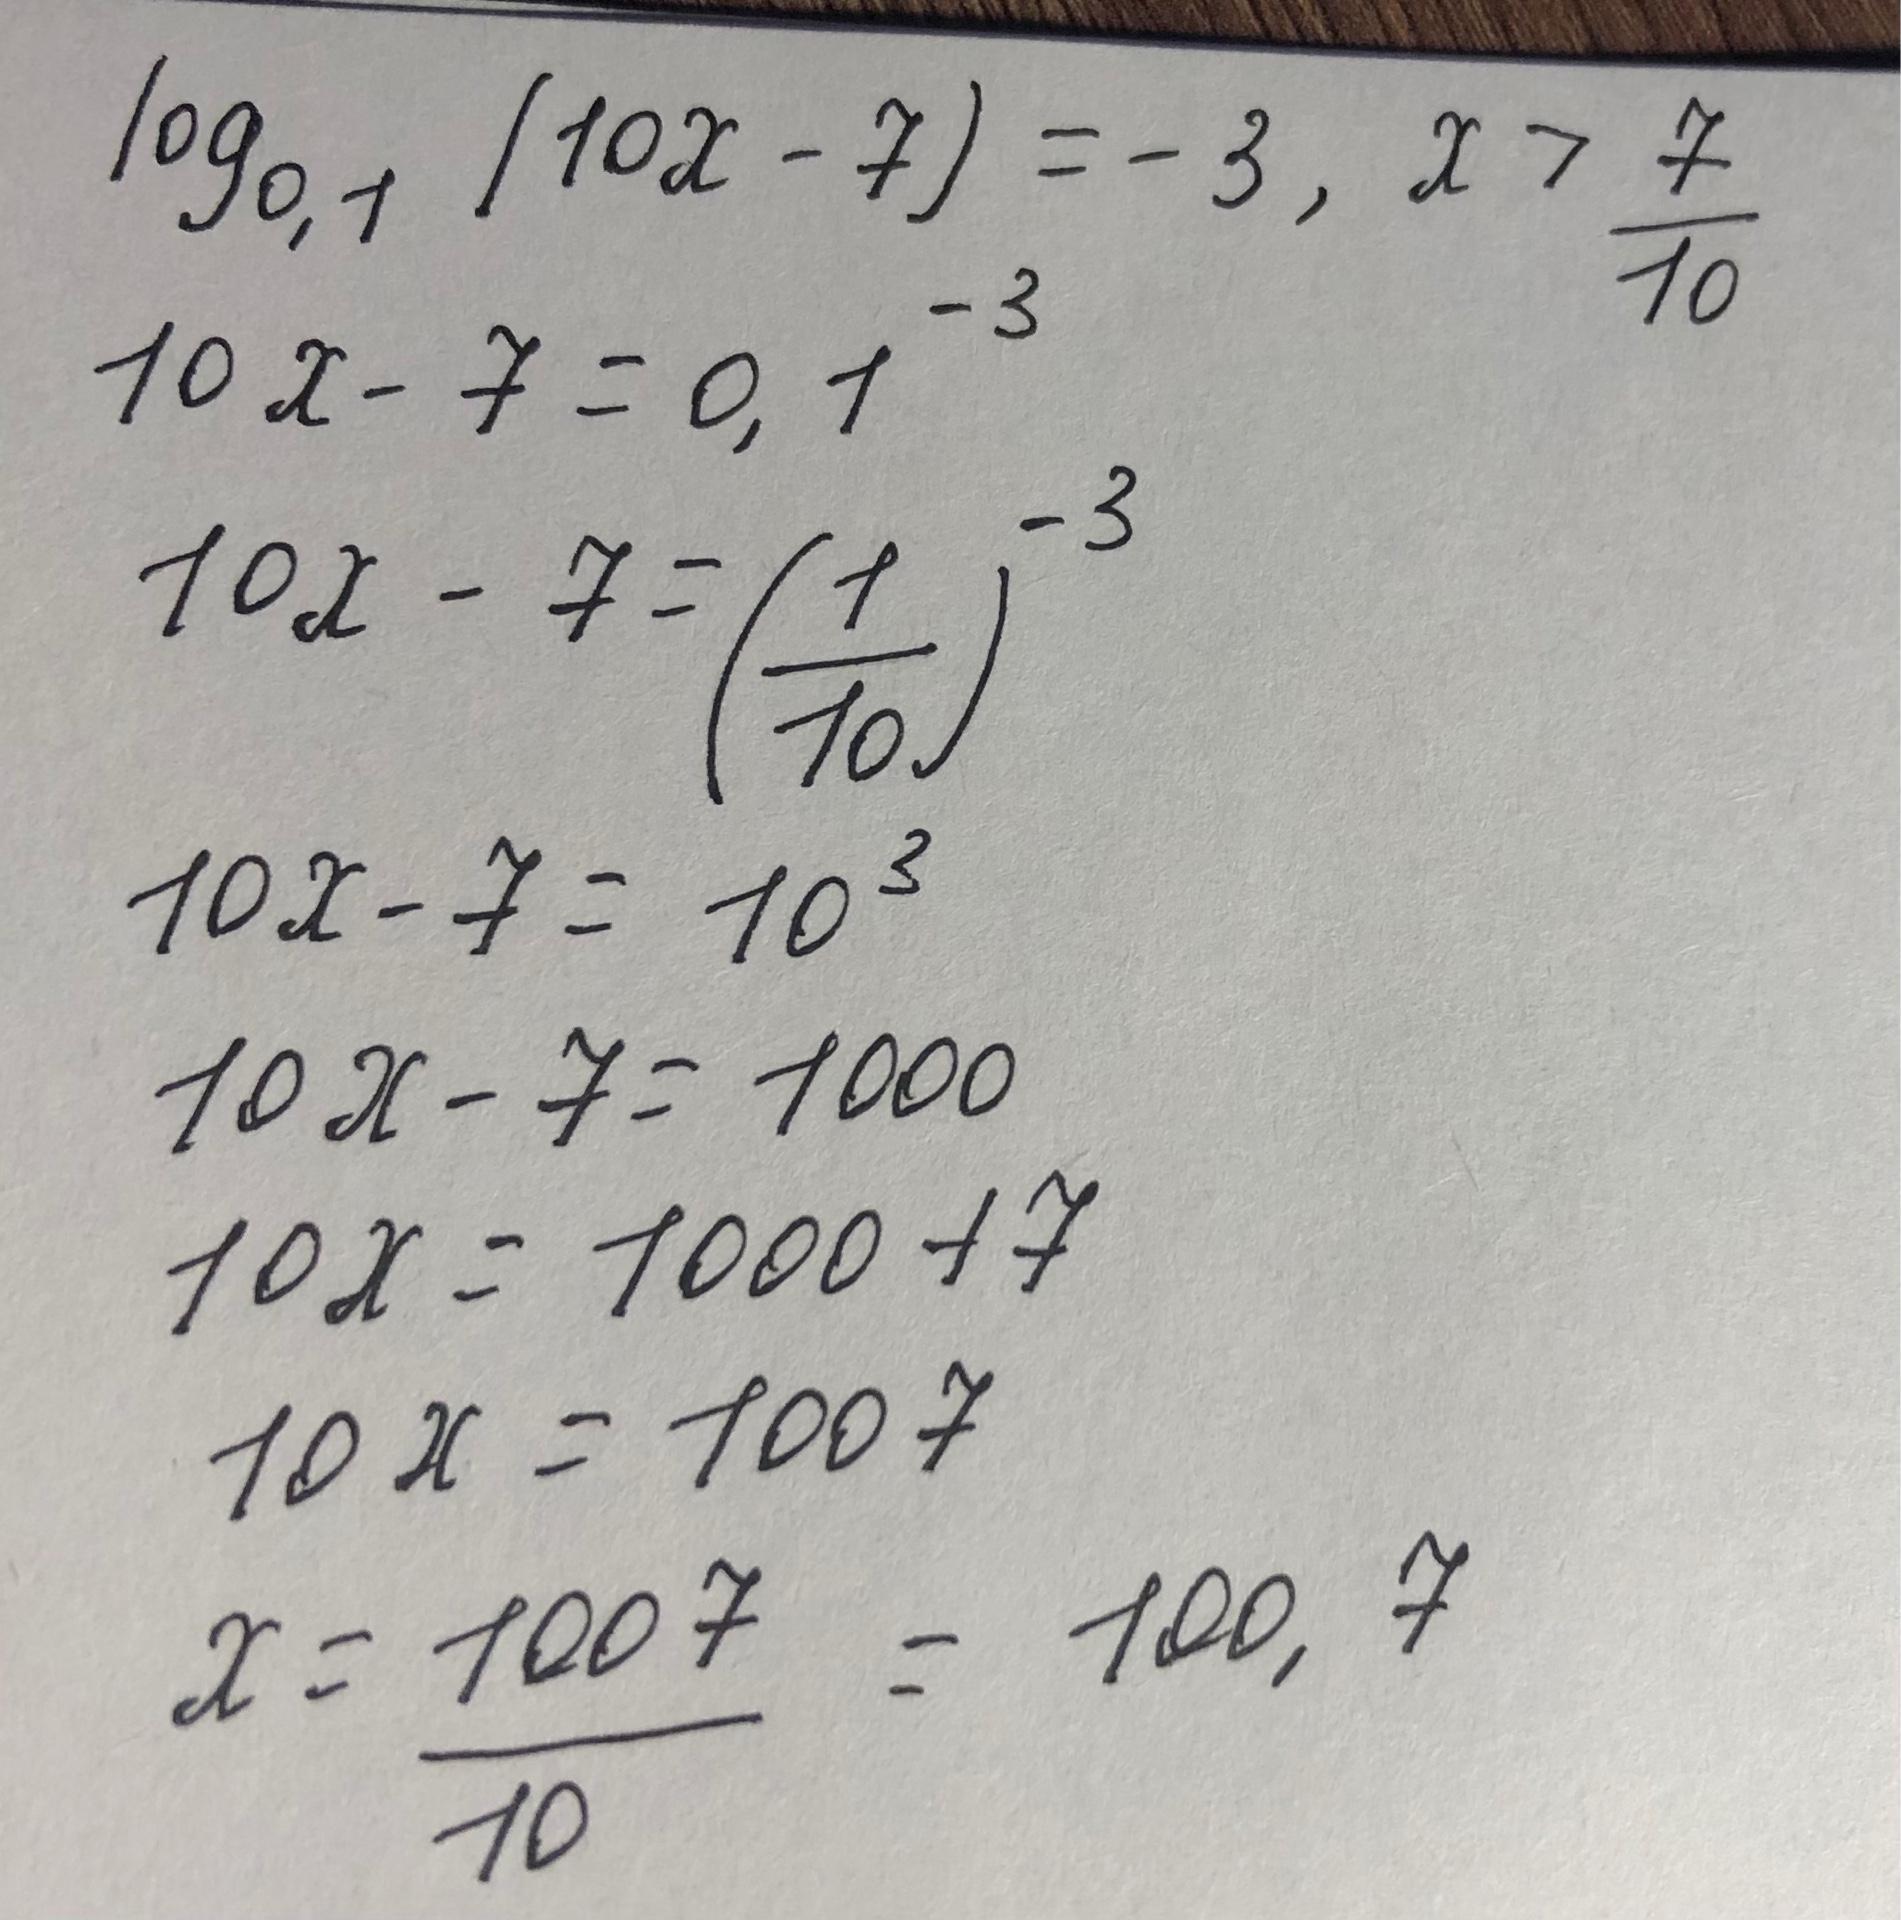 log₀,₁ (10x - 7) = -3, x > 7/10
10x - 7 = 0,1⁻³
10x - 7 = (1/10)⁻³
10x - 7 = 10³
10x - 7 = 1000
10x = 1000 + 7
10x = 1007
x = 1007/10 = 100,7